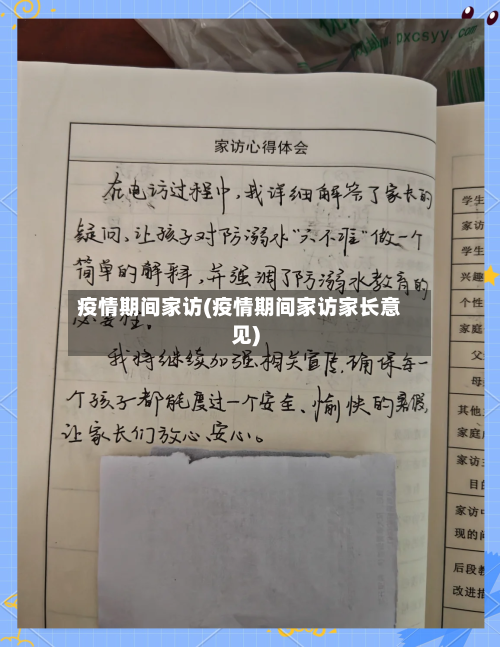 pxcsyy.com
家访心得体会
在电访过程中,我详细解答了家长的
疑问,让孩子对防溺水“六不准”做一个
简单的解释,并强调了防溺水教育的
必要性。
疫情期间家访(疫情期间家访家长意
见)
我将继续加强相关宣传,确保每一
个孩子都能度过一个安全、愉快的暑假,
让家长们放心、安心。
学生
家访
学生
兴趣
个性
家庭
父
母
其他
家庭
家访
目的
家访中
现的问
后段教
改进措